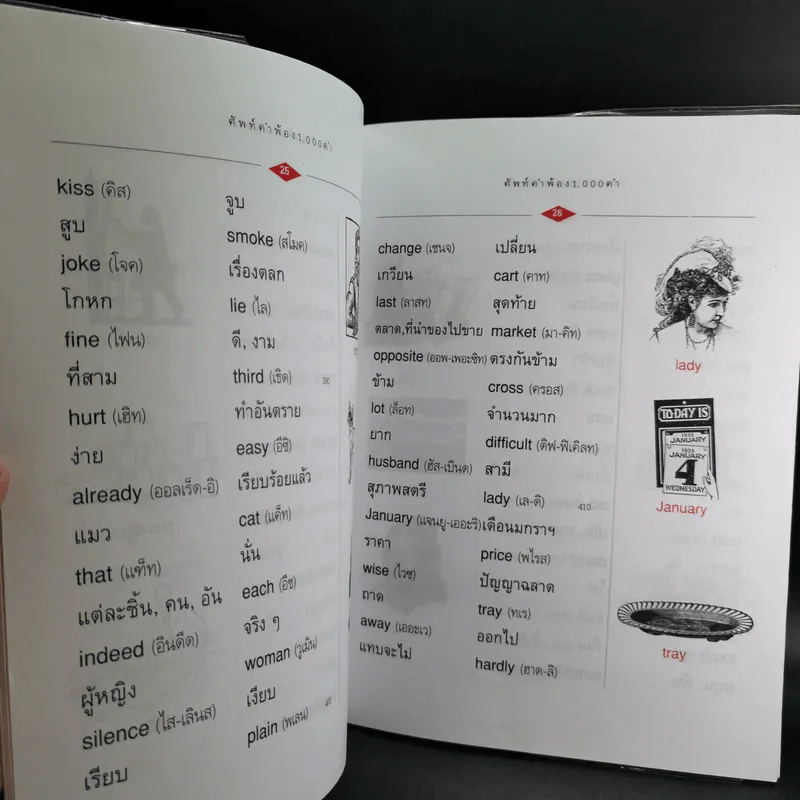 ศัพท์คำพ้อง1,000คำ
25
kiss (คิส) จูบ
สูบ smoke (สโมค)
joke (โจค) เรื่องตลก
โกหก lie (ไล)
fine (ไฟน) ดี, งาม
ที่สาม third (เธิด) 390
hurt (เฮิท) ทำอันตราย
ง่าย easy (อีซิ)
already (ออลเร็ด-อิ) เรียบร้อยแล้ว
แมว cat (แค็ท)
that (แฑ็ท) นั่น
แต่ละชิ้น, คน, อัน each (อีช)
indeed (อินดีด) จริง ๆ
ผู้หญิง woman (วูเมิน)
silence (ไส-เลินส) เงียบ
เรียบ plain (พเลน) 400
ศัพท์คำพ้อง1,000คำ
26
change (เชนจ) เปลี่ยน
เกวียน cart (คาท)
last (ลาสท) สุดท้าย
ตลาด,ที่นำของไปขาย market (มา-คิท)
opposite (ออพ-เพอะซิท) ตรงกันข้าม
ข้าม cross (ครอส)
lot (ล็อท) จำนวนมาก
ยาก difficult (ดิฟ-ฟิเคิลท)
husband (ฮัส-เบินด) สามี
สุภาพสตรี lady (เล-ดิ) 410
January (แจนยู-เออะริ) เดือนมกราฯ
ราคา price (พไรส)
wise (ไวซ) ปัญญาฉลาด
ถาด tray (ทเร)
away (เออะเว) ออกไป
แทบจะไม่ hardly (ฮาด-ลิ)
lady
TO-DAY IS
1933
JANUARY
1933
JANUARY
4
WEDNESDAY
January
tray